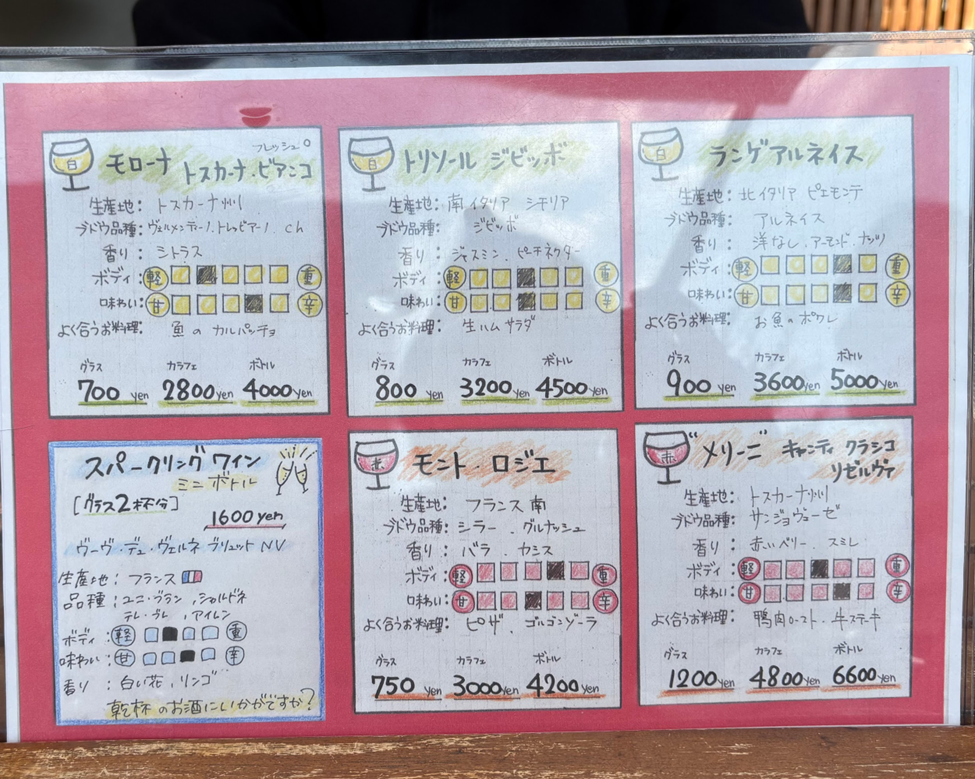 白
フレッシュ
モローナ
トスカーナ・ビアンコ
生産地: トスカーナ州
ブドウ品種: ヴェルメンティーノ、トレッビアーノ、ch
香り: シトラス
ボディ: 軽 重
味わい: 甘 辛
よく合うお料理: 魚のカルパッチョ
グラス カラフェ ボトル
700 yen 2800 yen 4000 yen
白
トリソール ジビッボ
生産地: 南イタリア シチリア
ブドウ品種: ジビッボ
香り: ジャスミン、ピーチネクター
ボディ: 軽 重
味わい: 甘 辛
よく合うお料理: 生ハムサラダ
グラス カラフェ ボトル
800 yen 3200 yen 4500 yen
白
ランゲアルネイス
生産地: 北イタリア ピエモンテ
ブドウ品種: アルネイス
香り: 洋なし、アーモンド、ナッツ
ボディ: 軽 重
味わい: 甘 辛
よく合うお料理: お魚のポワレ
グラス カラフェ ボトル
900 yen 3600 yen 5000 yen
スパークリングワイン
ミニボトル
[グラス2杯分]
1600 yen
ヴーヴ・デュ・ヴェルネ ブリュット NV
生産地: フランス
品種: ユニ・ブラン、シャルドネ
テレ・ブレ、アイレン
ボディ: 軽 重
味わい: 甘 辛
香り: 白い花、リンゴ
乾杯のお酒にいかがですか?
赤
モント・ロジエ
生産地: フランス 南
ブドウ品種: シラー、グルナッシュ
香り: バラ、カシス
ボディ: 軽 重
味わい: 甘 辛
よく合うお料理: ピザ、ゴルゴンゾーラ
グラス カラフェ ボトル
750 yen 3000 yen 4200 yen
赤
メリーニ キャンティ クラシコ
リゼルヴァ
生産地: トスカーナ州
ブドウ品種: サンジョヴェーゼ
香り: 赤いベリー スミレ
ボディ: 軽 重
味わい: 甘 辛
よく合うお料理: 鴨肉ロースト、牛ステーキ
グラス カラフェ ボトル
1200 yen 4800 yen 6600 yen